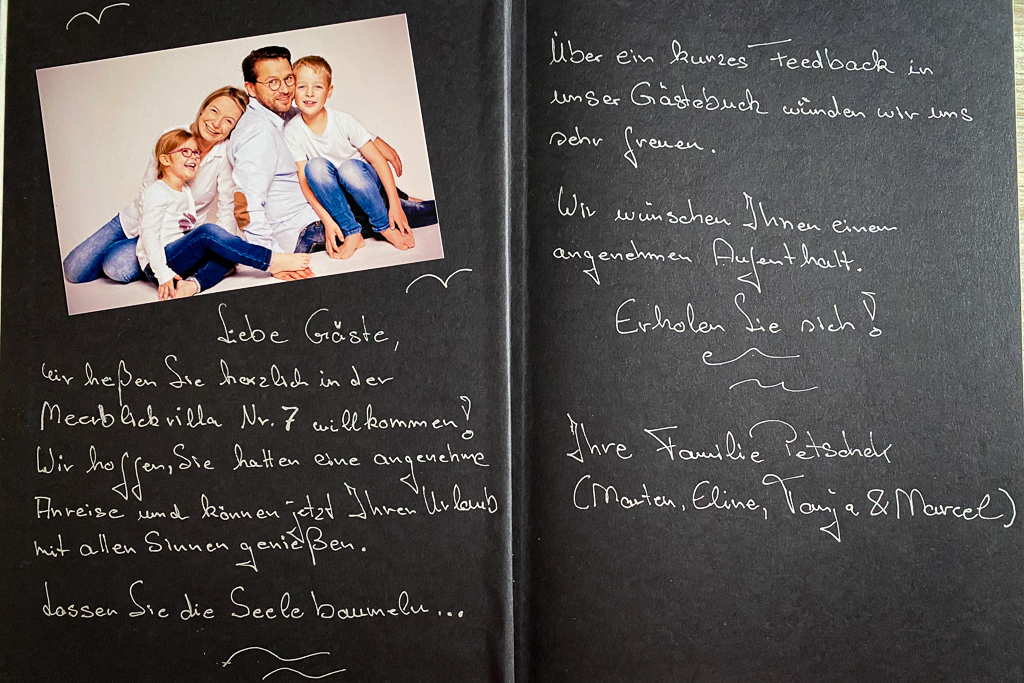 Liebe Gäste,
wir heßen Sie herzlich in der
Meerblickvilla Nr. 7 willkommen!
Wir hoffen, Sie hatten eine angenehme
Anreise und können jetzt Ihren Urlaub
mit allen Sinnen genießen.
Lassen Sie die Seele baumeln...
Über ein kurzes Feedback in
unser Gästebuch würden wir uns
sehr freuen.
Wir wünschen Ihnen einen
angenehmen Aufenthalt.
Erholen Sie sich!
Ihre Familie Petschek
(Marten, Eline, Tanja & Marcel)